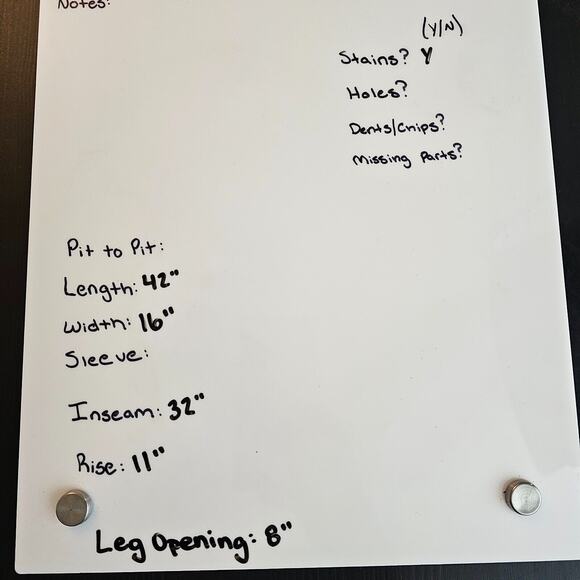 Notes:
(Y/N)
Stains? Y
Holes?
Dents/Chips?
Missing Parts?
Pit to Pit:
Length: 42"
Width: 16"
Sleeve:
Inseam: 32"
Rise: 11"
Leg Opening: 8"